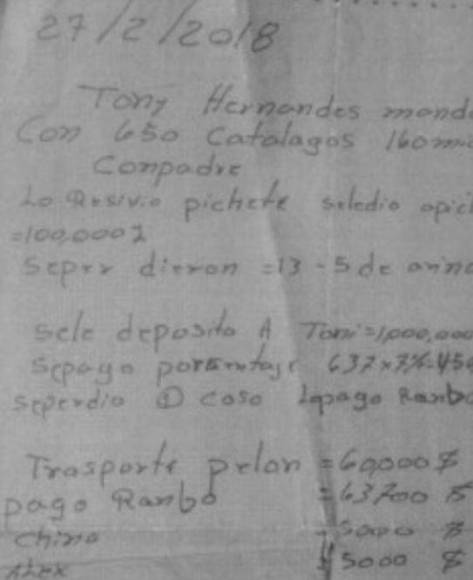 27/2/2018
Tony Hernandes mando
Con 650 Catalagos 160
Conpadre
Lo Resivio pichete seledio apich
=100,000$
Seper dieron =13 - 5 de
Sele deposito A Toni=1,000,000
Sepago porsentaje 637x7%
seperdio ① coso Lopago Ranbo
Trasporte pelon =60,000 $
pago Ranbo =63700 $
Chino 5000 $
Alex 5000 $